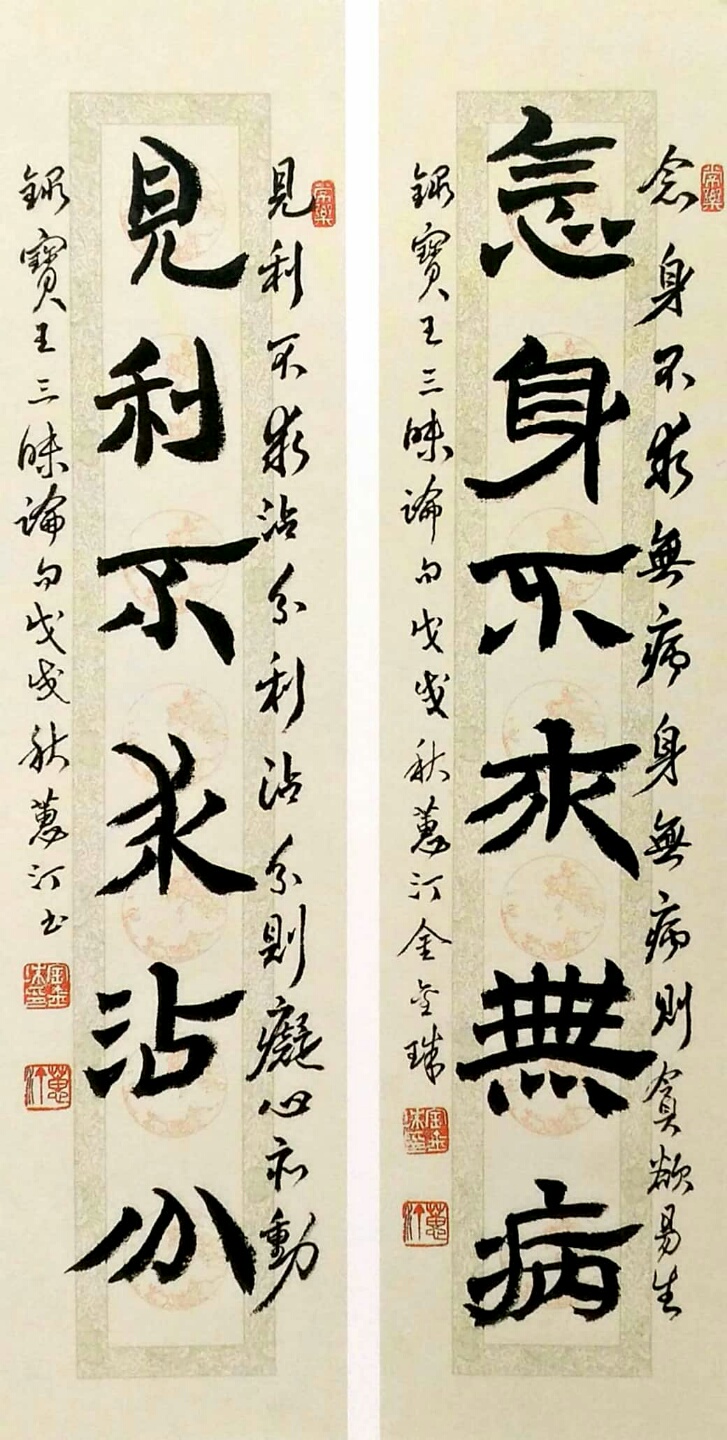 常樂
念身不求無病身無病則貪欲易生
念身不求無病
錄寶王三昧論句戊戌秋蕙汀金珠
蕙汀
常樂
見利不求沾分利沾分則癡心亦動
見利不求沾分
錄寶王三昧論句戊戌秋蕙汀書
蕙汀